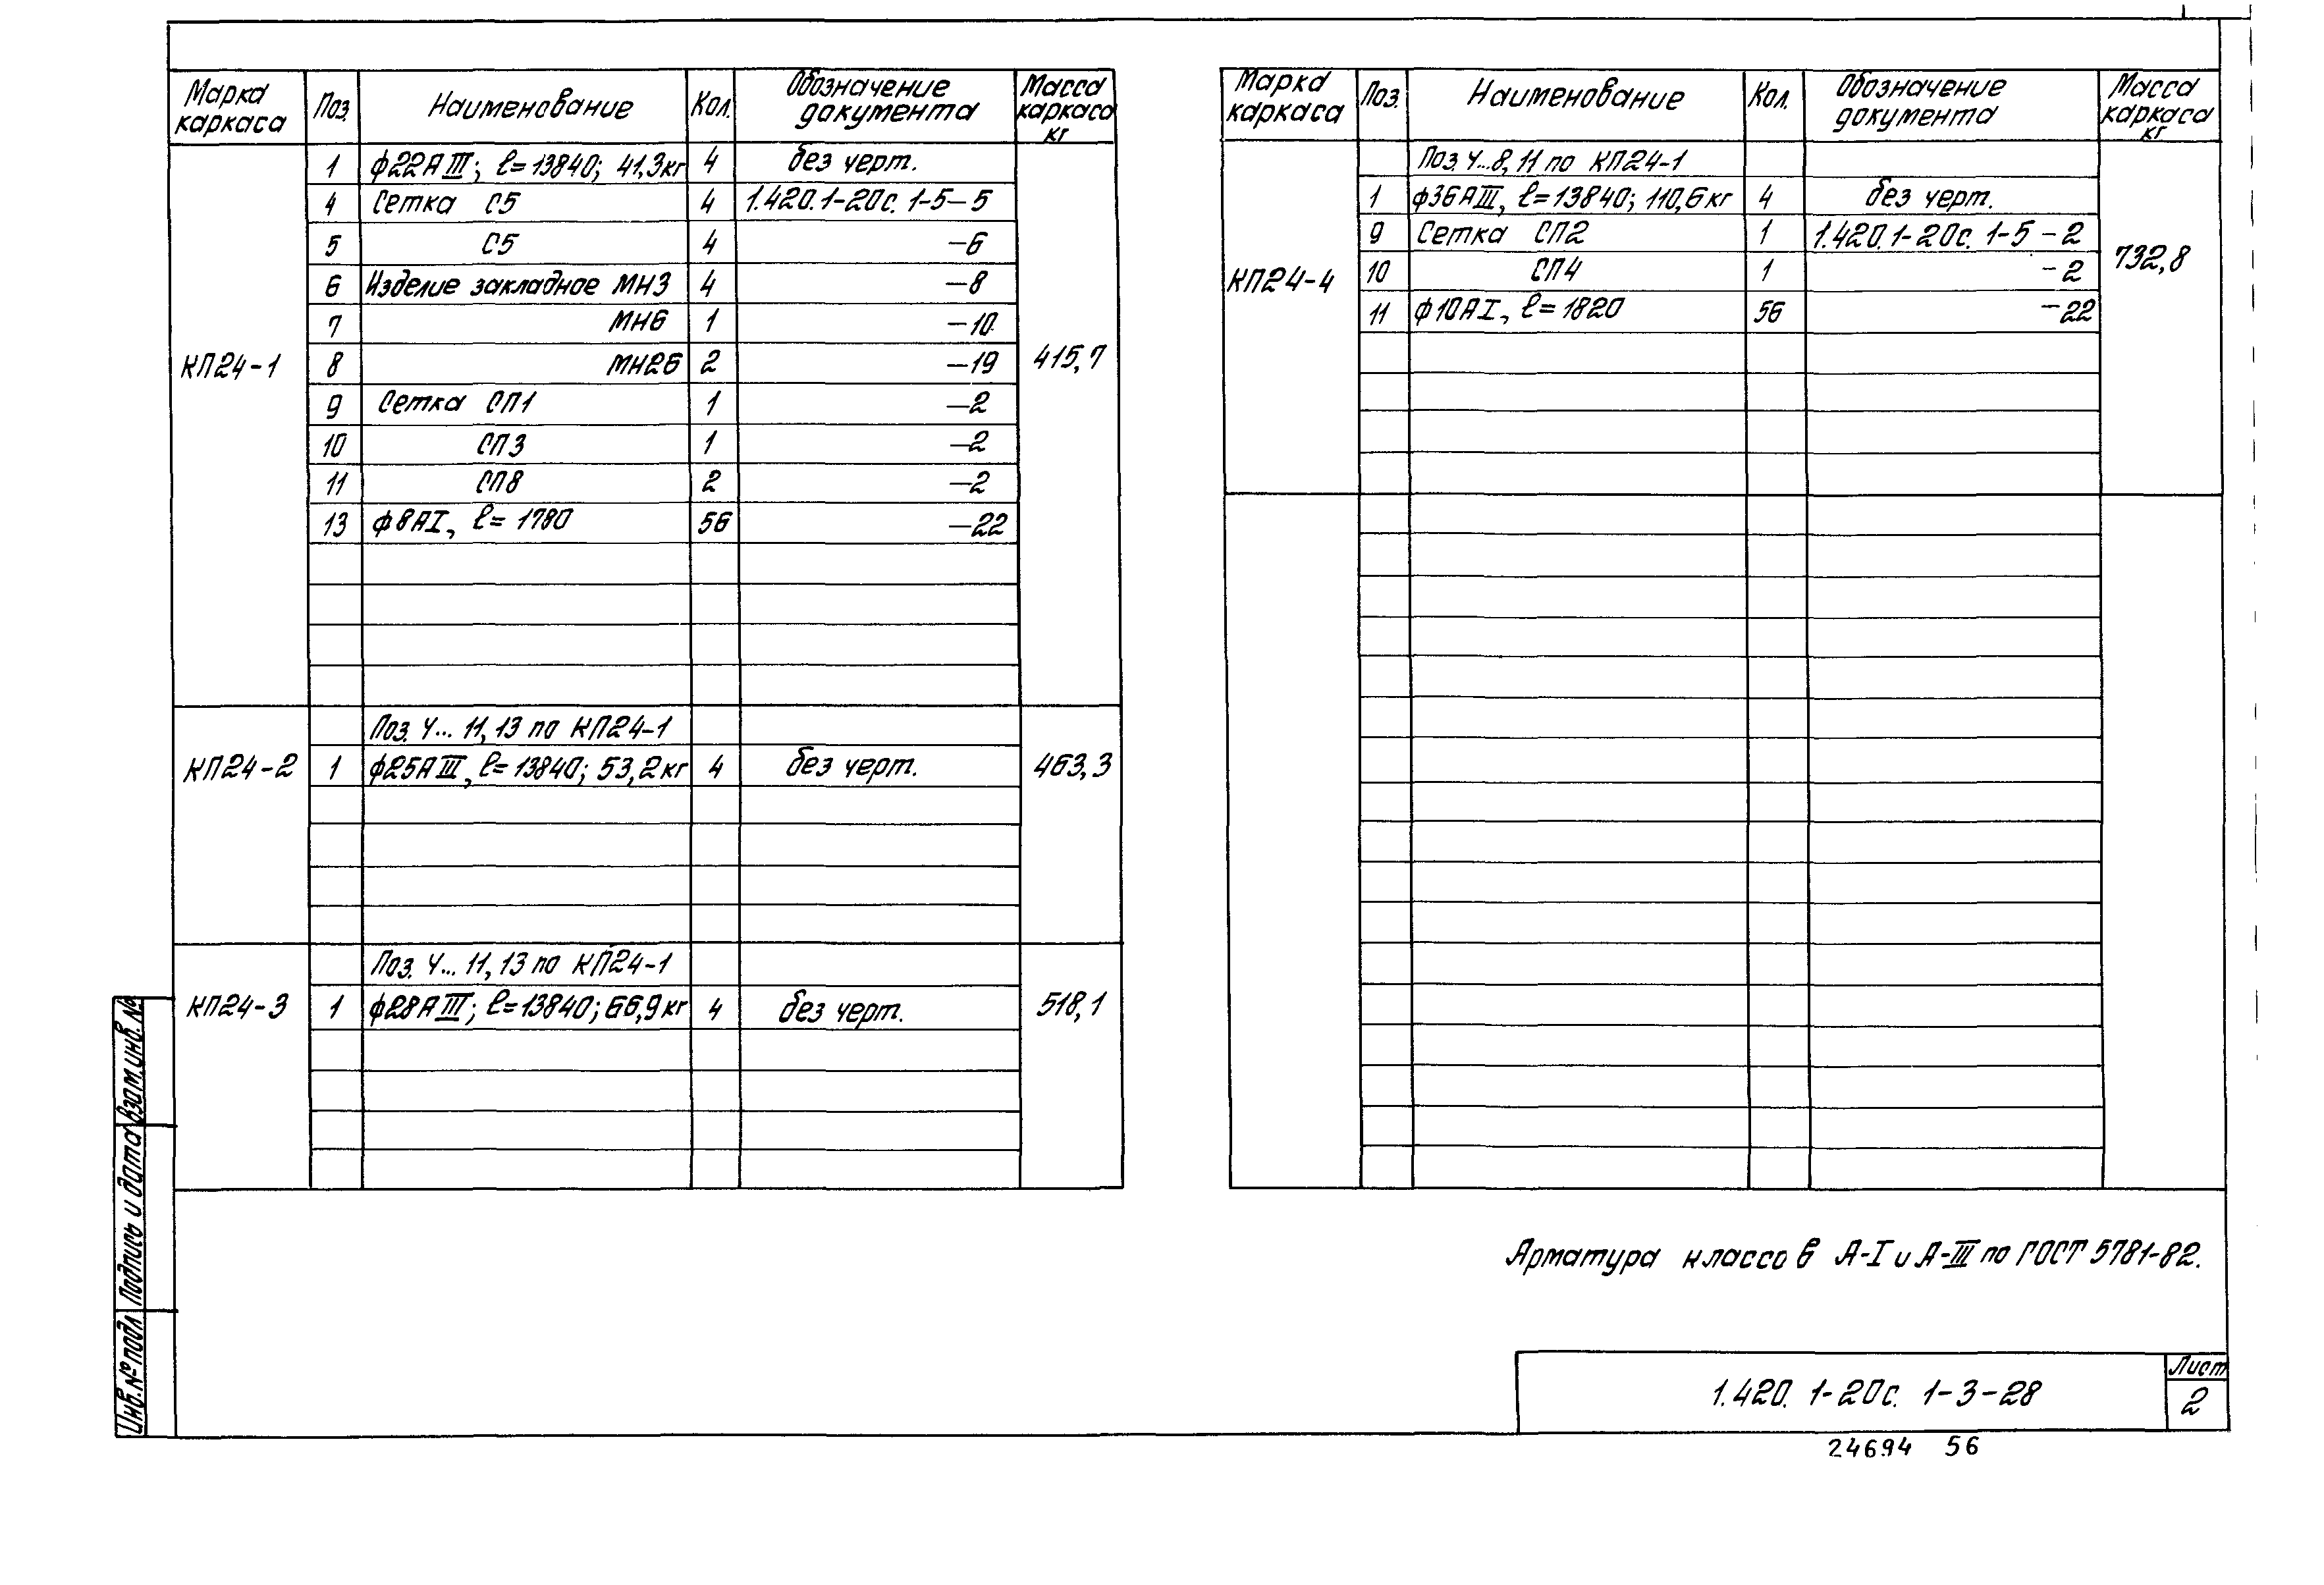 Марка каркаса Поз. Наименование Кол. Обозначение документа Масса каркаса кг
КП24-1 415,7
1 ф22АIII; ℓ=13840; 41,3кг 4 без черт.
4 Сетка С5 4 1.420.1-20с. 1-5-5
5 С5 4 -6
6 Изделие закладное МН3 4 -8
7 МН6 1 -10
8 МН26 2 -19
9 Сетка СП1 1 -2
10 СП3 1 -2
11 СП8 2 -2
13 ф8АI, ℓ=1780 56 -22
Поз. 4... 11, 13 по КП24-1
КП24-2 1 ф25АIII, ℓ=13840; 53,2кг 4 без черт. 463,3
Поз. 4... 11, 13 по КП24-1
КП24-3 1 ф28АIII; ℓ=13840; 66,9кг 4 без черт. 518,1
Марка каркаса Поз. Наименование Кол. Обозначение документа Масса каркаса кг
КП24-4 732,8
Поз. 4...8, 11 по КП24-1
1 ф36АIII, ℓ=13840; 110,6кг 4 без черт.
9 Сетка СП2 1 1.420.1-20с. 1-5-2
10 СП4 1 -2
11 ф10АI, ℓ=1820 56 -22
Арматура классов А-I и А-III по ГОСТ 5781-82.
Инв.№ подл. Подпись и дата Взам.инв.№
1.420.1-20с. 1-3-28
Лист
2
24694 56